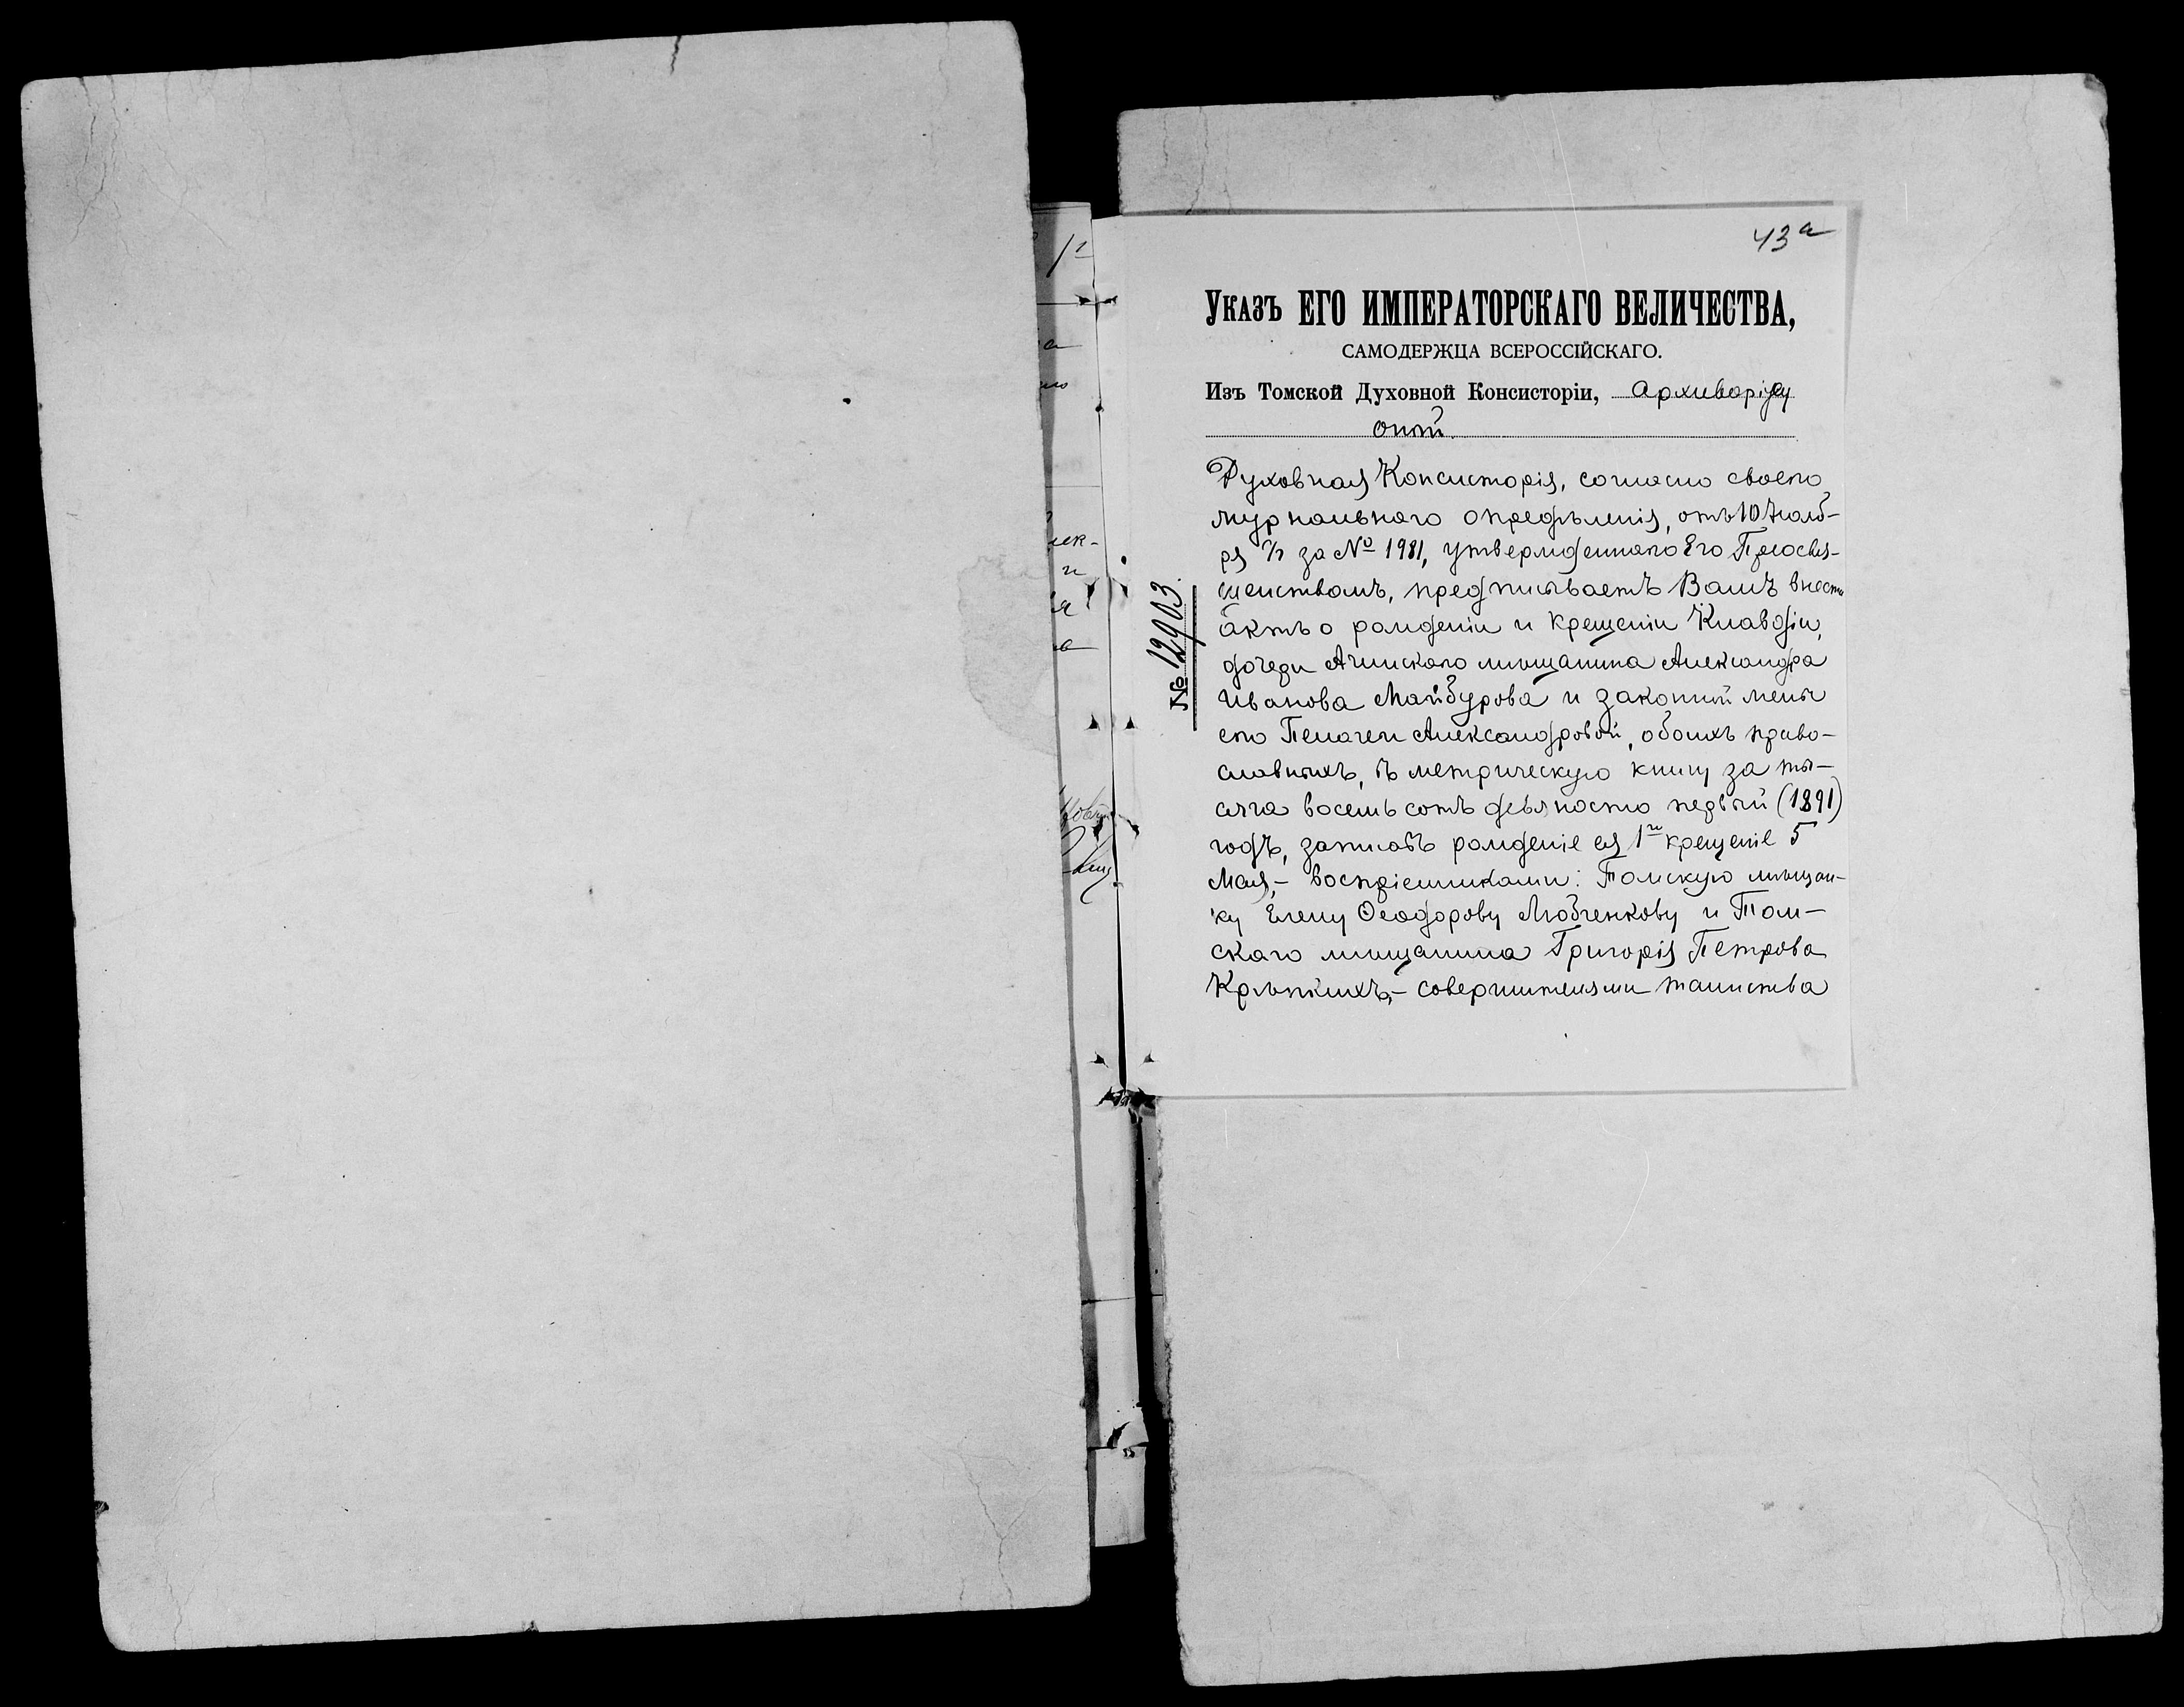 43а
УКАЗЪ ЕГО ИМПЕРАТОРСКАГО ВЕЛИЧЕСТВА,
САМОДЕРЖЦА ВСЕРОССІЙСКАГО.
Изъ Томской Духовной Консисторіи, Архиваріусу
оной.
№ 12903.
Духовная Консисторія, согласно своего
журнальнаго опредѣленія, отъ 10 Нояб-
ря за № 1981, утвержденнаго Его Преосвя-
щенствомъ, предписываетъ Вамъ внести
актъ о рожденіи и крещеніи Клавдіи,
дочери Ачинскаго мѣщанина Александра
Иванова Майбурова и законной жены
его Пелагеи Александровой, обоихъ право-
славныхъ, въ метрическую книгу за ты-
сяча восемьсотъ девяносто первый (1891)
годъ, записавъ рожденіе ея 1го крещеніе 5
Мая,- воспріемниками: Томскую мѣщан-
ку Елену Ѳеодорову Любченкову и Том-
скаго мѣщанина Григорія Петрова
Крѣпкихъ,- совершителями таинства